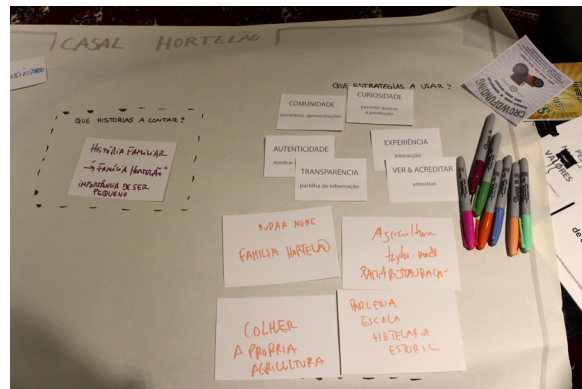 CASAL HORTELÃO
QUE HISTORIAS A CONTAR?
HISTÓRIA FAMILIAR
→ FAMÍLIA HORTELÃO
IMPORTÂNCIA DE SER
PEQUENO
QUE ESTRATEGIAS A USAR?
COMUNIDADE
encontros, apresentações
CURIOSIDADE
permitir acesso
à produção
AUTENTICIDADE
mostrar
EXPERIÊNCIA
interacção
TRANSPARÊNCIA
partilha de informação
VER & ACREDITAR
amostras
MUDAR NOME
FAMILIA HORTELÃO
Agricultura
taylor-made
PARA RESTAURAÇÃO
COLHER
A PROPRIA
AGRICULTURA
PARCERIA
ESCOLA
HOTELARIA
ESTORIL
CROWDFUNDING
VALORES